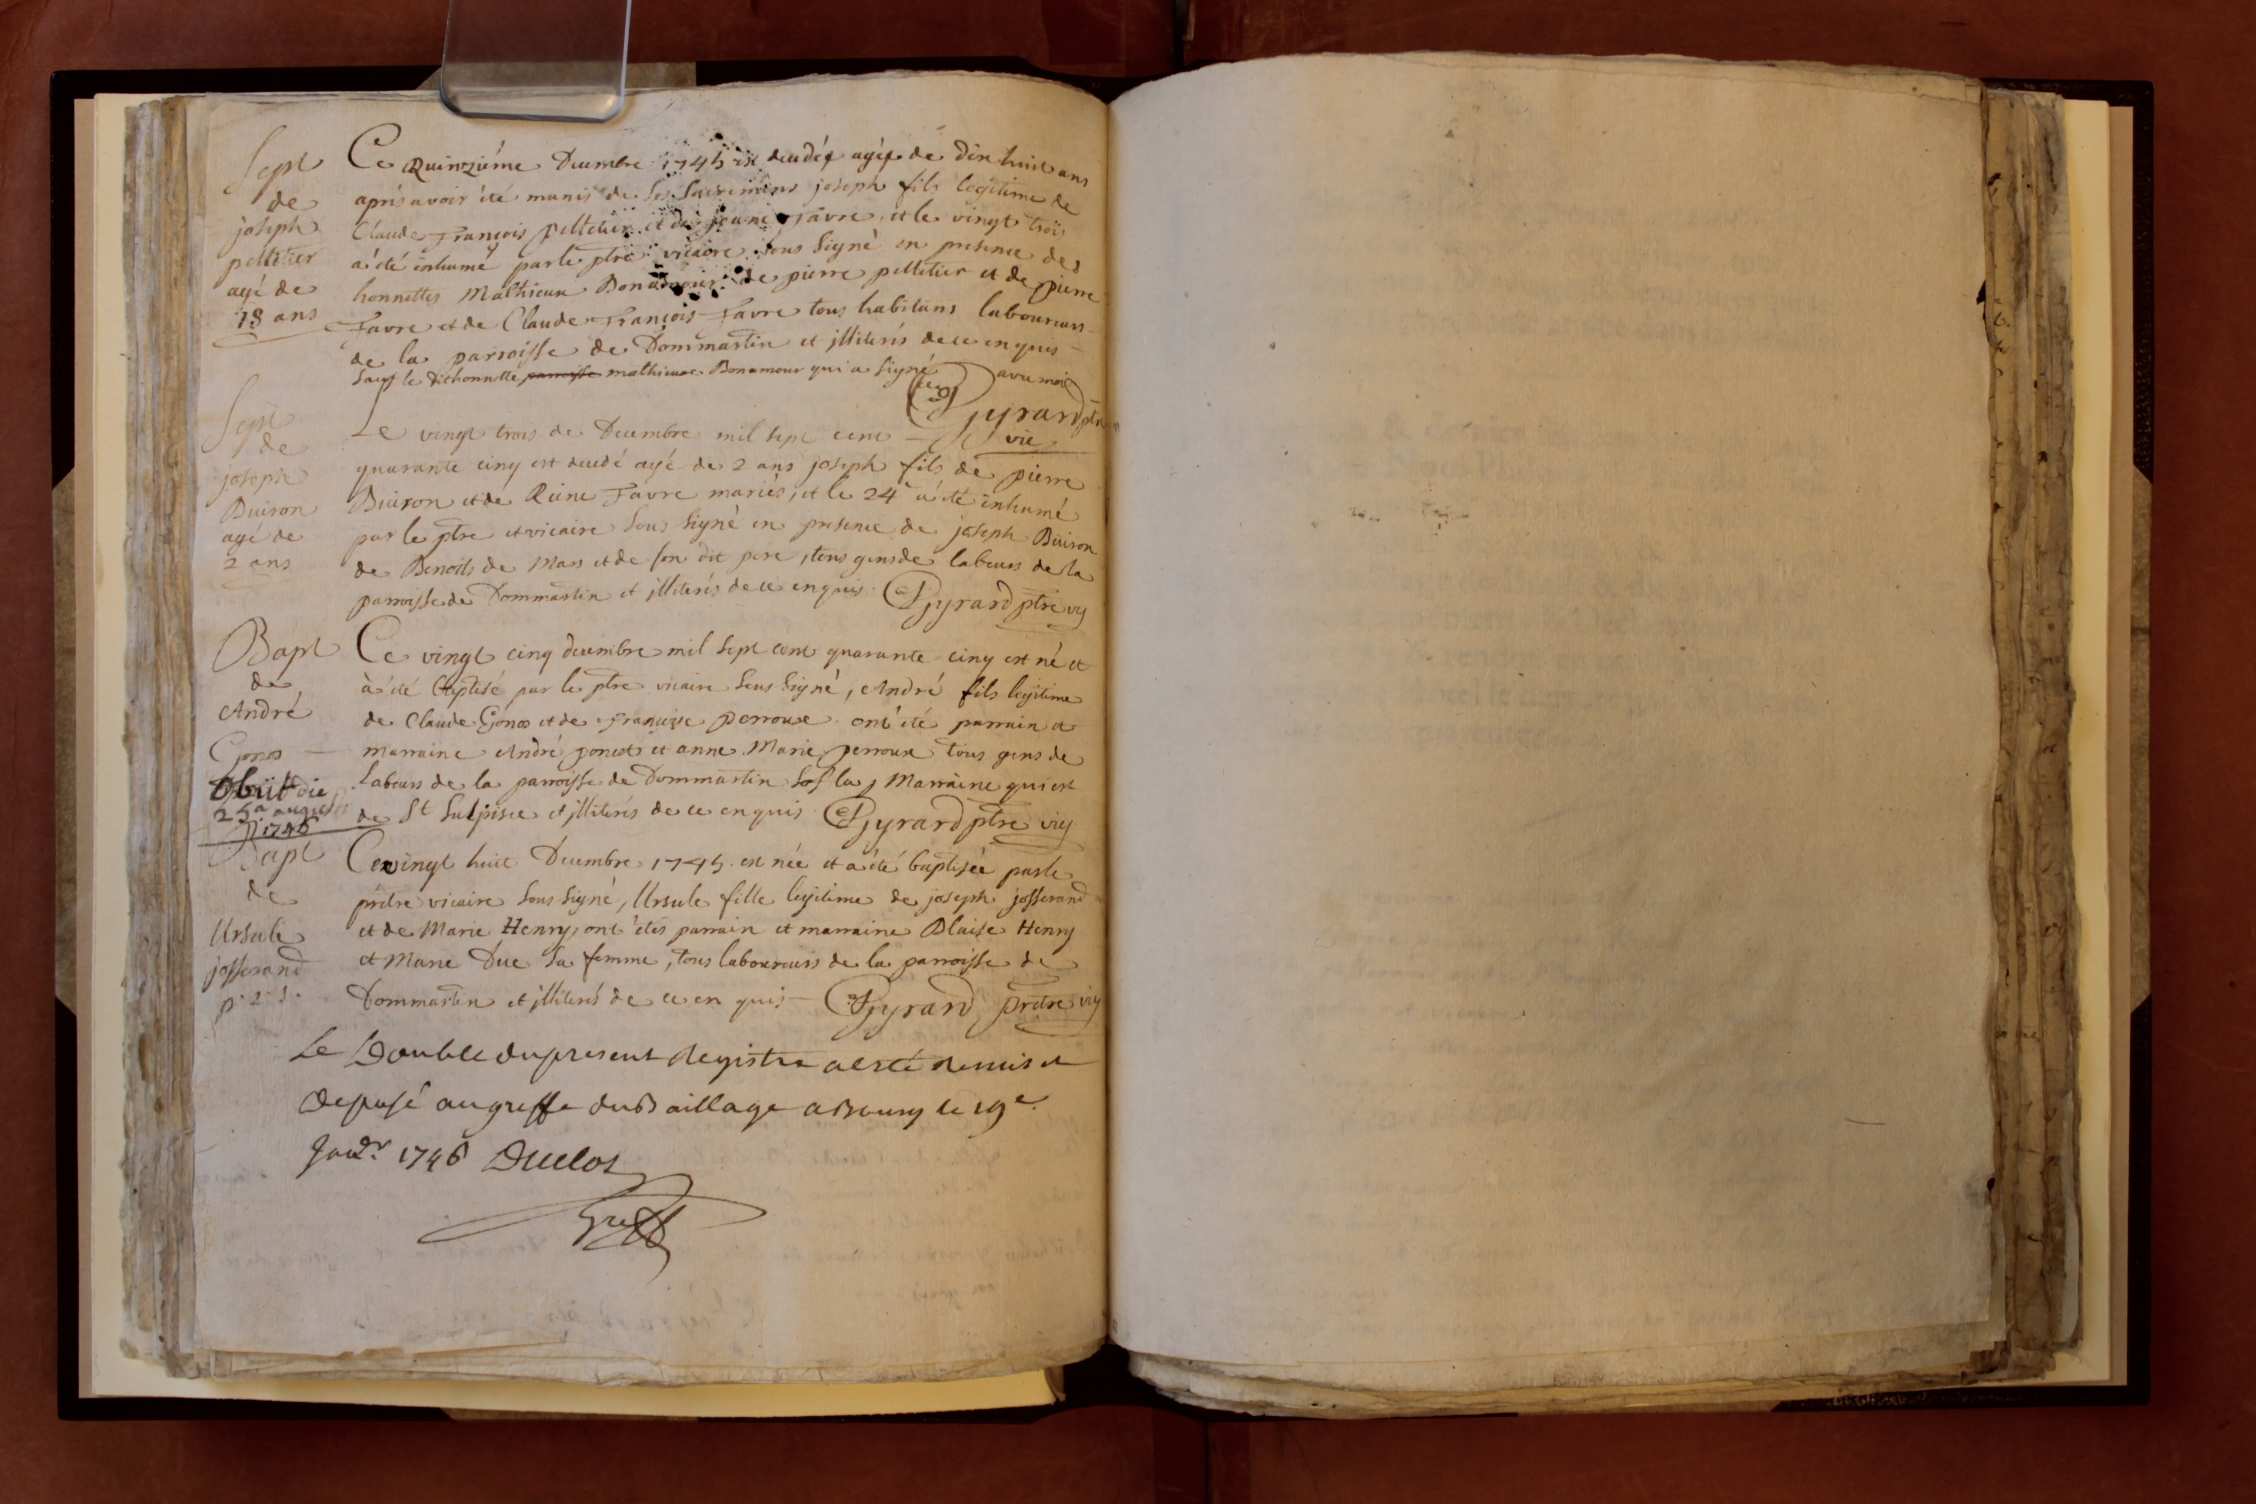 Sept
de
joseph
pelletier
agé de
18 ans
Ce Quinziéme Decembre 1745 est decedé agé de dix huit ans
aprés avoir été munis de ses sacremens joseph fils legitime de
Claude François pelletier et de jeanne Favre, et le vingt trois
a été inhumé par le ptre vicaire sous signé en presence des
honnettes Mathieux Bonamour de pierre pelletier et de pierre
Favre et de Claude François Favre tous habitans laboureurs
de la parroisse de Dommartin et illiterés de ce enquis
sauf le dit honnette parroisse mathieux Bonamour qui a signé avec moi
Gyrard ptre
vic
Sept
de
joseph
Buiron
agé de
2 ans
Le vingt trois de Decembre mil sept cent
quarante cinq est decedé agé de 2 ans joseph fils de pierre
Buiron et de Reine Favre mariés, et le 24 a été inhumé
par le ptre et vicaire sous signé en presence de joseph Buiron
de Benoits de Mars et de son dit pere, tous gens de labeurs de la
parroisse de Dommartin et illiterés de ce enquis. Gyrard ptre vic
Bapt
de
André
Gonos
obiit die
25a augusti
1746
Ce vingt cinq decembre mil sept cent quarante cinq est né et
à été baptisé par le ptre vicaire sous signé, André fils legitime
de Claude Gonos et de Françoise perroux ont été parrain et
marraine André poncet et anne Marie perroux tous gens de
labeurs de la parroisse de Dommartin sof la Marraine qui est
de St Sulpisce et illiterés de ce enquis Gyrard ptre vic
Bapt
de
Ursule
josserand
p. 2 s.
Ce vingt huit Decembre 1745. est née et a été baptisée par le
prêtre vicaire sous signé, Ursule fille legitime de joseph josserand
et de Marie Henry, ont étés parrain et marraine Blaise Henry
et Marie Duc sa femme, tous laboureurs de la parroisse de
Dommartin et illiterés de ce en quis Gyrard prêtre vic
Le Double du present Registre a esté remis et
deposé au greffe du Baillage a Bourg le 19e.
Janvr. 1746 Duclos
Greff